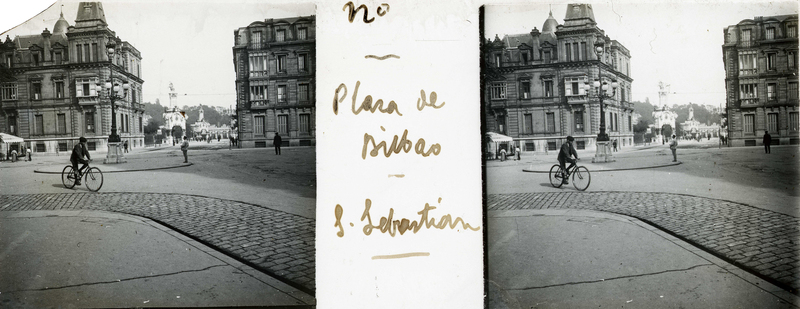 no
Plaza de
Bilbao
S. Sebastián